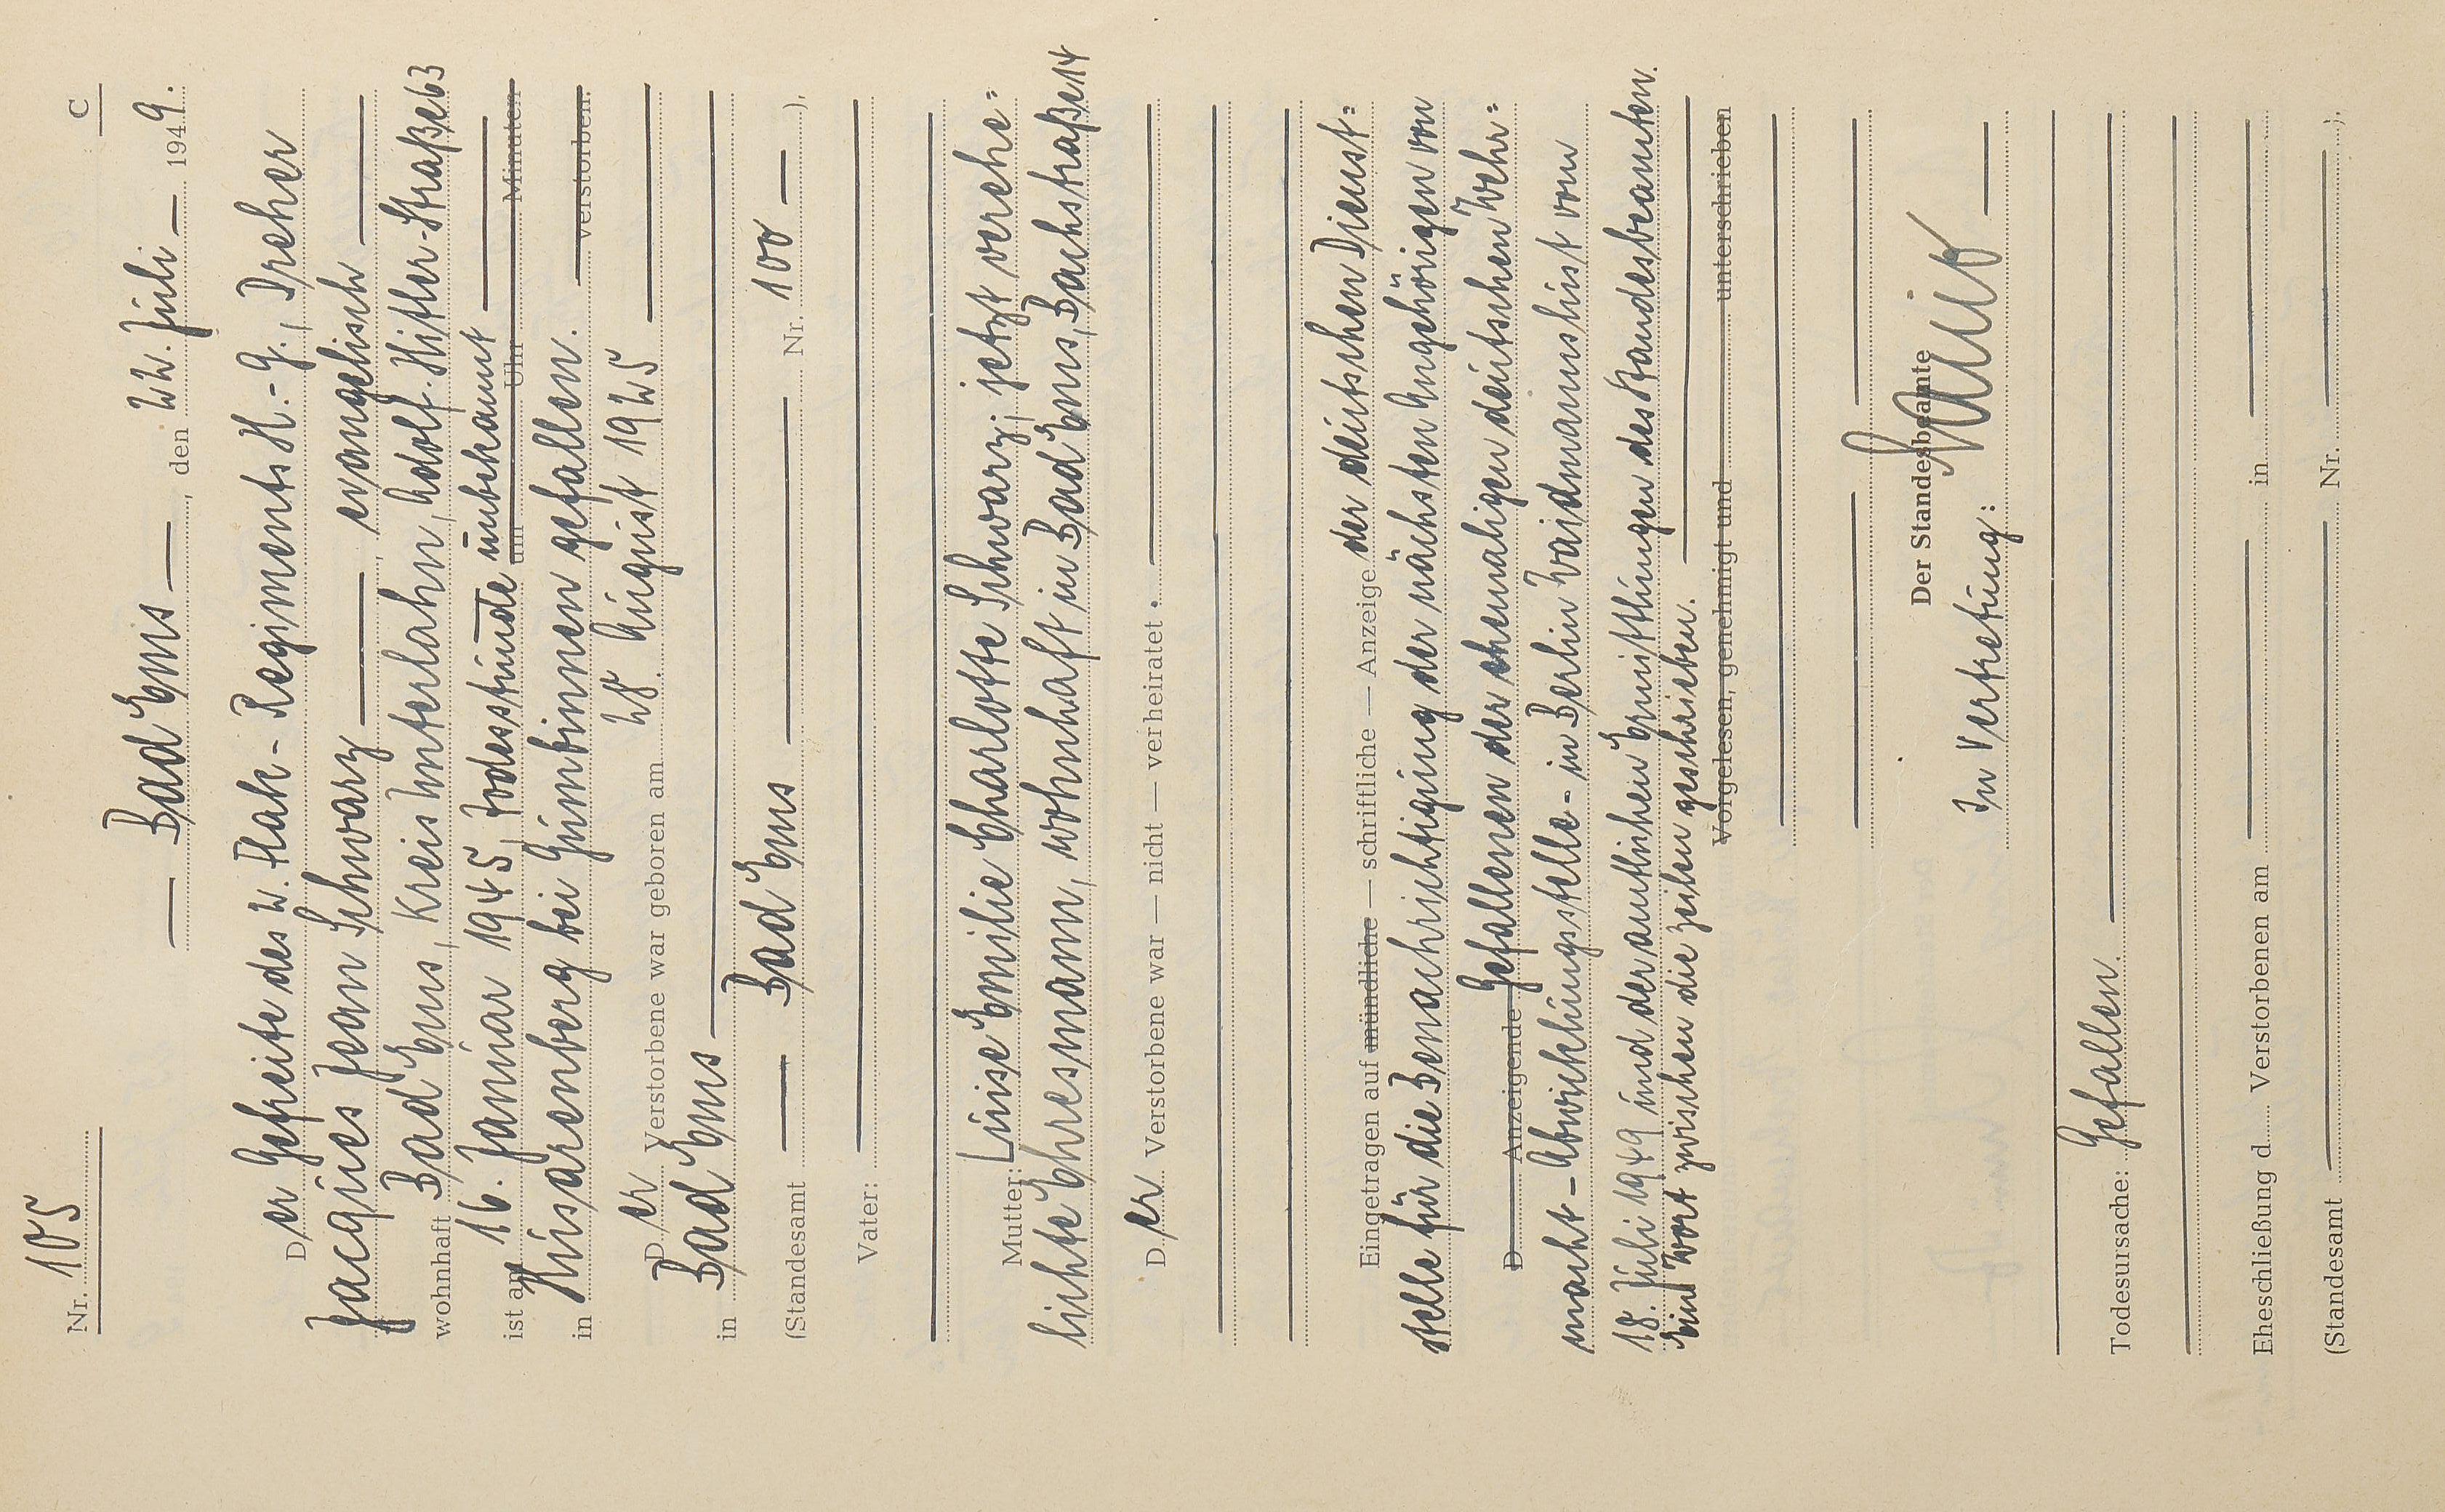 Nr. 105 C
— Bad Ems —, den 22. Juli — 1949.
Der Gefreite des 2. Flak-Regiments H.-G., Dreher
Jacques Jean Schwarz — , evangelisch —
wohnhaft Bad Ems, Kreis Unterlahn, Adolf-Hitler-Straße 63
ist am 16. Januar 1945, Todesstunde unbekannt — um Uhr Minuten
in Husarenberg bei Gumbinnen gefallen. — verstorben.
Der Verstorbene war geboren am 28. August 1925 —
in Bad Ems —
(Standesamt — Bad Ems — Nr. 100 — ).
Vater: —
Mutter: Luise Emilie Charlotte Schwarz, jetzt verehe=
lichte Ehresmann, wohnhaft in Bad Ems, Bachstraße 14
Der Verstorbene war — nicht — verheiratet. —
Eingetragen auf mündliche — schriftliche — Anzeige der deutschen Dienst=
stelle für die Benachrichtigung der nächsten Angehörigen von
D Anzeigende Gefallenen der ehemaligen deutschen Wehr=
macht - Abwicklungsstelle - in Berlin Waidmannslust vom
18. Juli 1949 und der amtlichen Ermittlungen des Standesbeamten.
Ein Wort zwischen die Zeilen geschrieben. —
Vorgelesen, genehmigt und unterschrieben
Der Standesbeamte
In Vertretung:
Todesursache: Gefallen. —
Eheschließung d Verstorbenen am — in —
(Standesamt — Nr. — ).